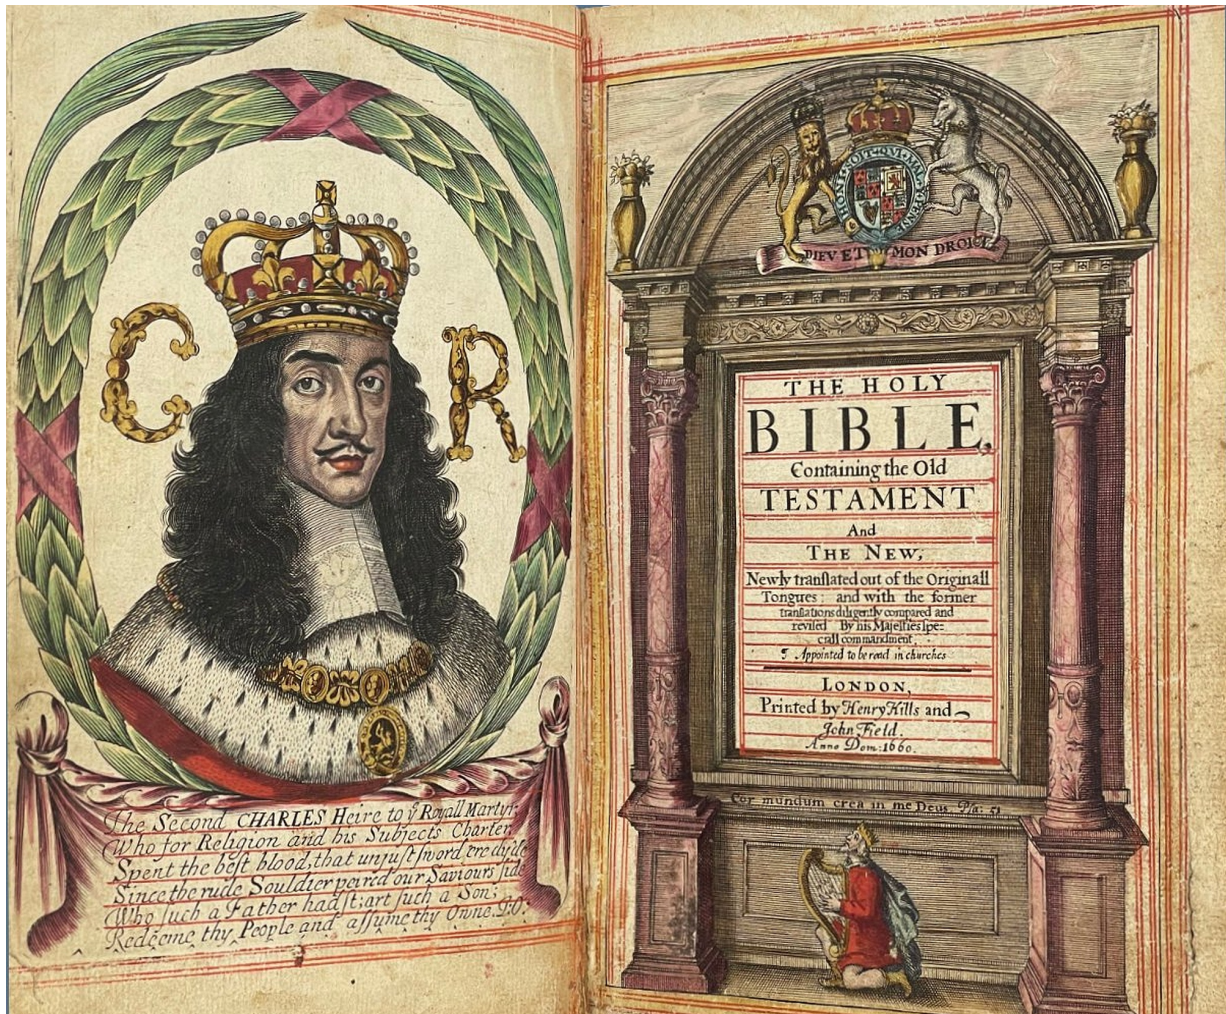 C R
The Second CHARLES Heire to yͤ Royall Martyr,
Who for Religion and his Subjects Charter
Spent the best blood, that unjust sword ere dy'de
Since the rude Souldier peirced our Saviours side
Who such a Father had'st; art such a Son;
Redeeme thy People and assume thy Owne. T:O:
HONI·SOIT·QVI·MAL·Y·PENSE
DIEV ET MON DROICT
THE HOLY
BIBLE,
Containing the Old
TESTAMENT
And
THE NEW,
Newly translated out of the Originall
Tongues: and with the former
translations diligently compared and
revised By his Majesties spe-
ciall commandment
¶ Appointed to be read in churches
LONDON,
Printed by Henry Hills and
John Field.
Anno Dom: 1660.
Cor mundum crea in me Deus. Psa: 51